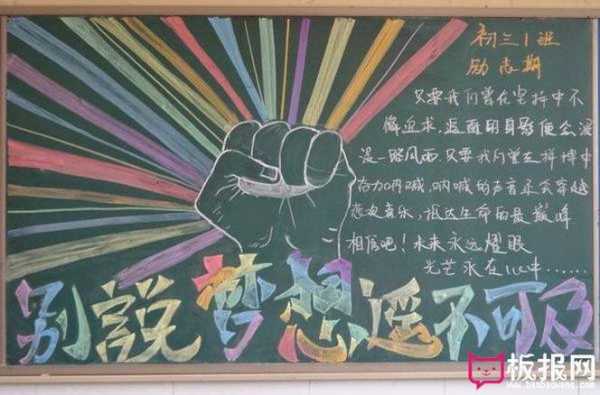 初三1班
励志期
只要我们曾在坚持中不
懈追求,的身影便会漫
漫一路风雨.只要我们曾在拼搏中
奋力呐喊,呐喊的声音还会穿越
音乐,抵达生命的最巅峰
相信吧!未来永远耀眼
光芒永在心中......
别說梦想遥不可及
板报网
www.banbaowang.com